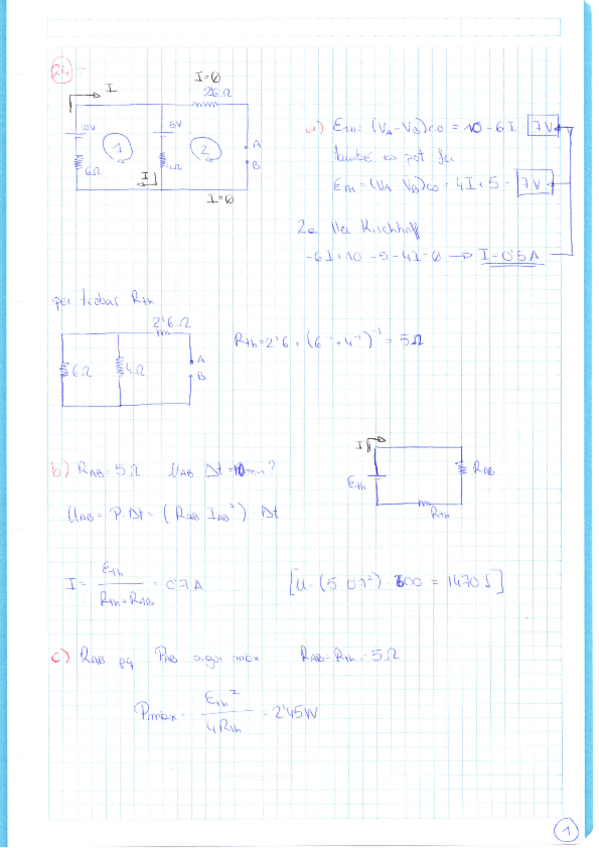 21.-
I=0
2'6Ω
I
10V
5V
6Ω
1
2
4Ω
A
B
I
I=0
a) ETh = (VA-VB)CO = 10-6I = 7V
també es pot fer
ETh = (VA-VB)CO = 4I+5 = 7V
2a Llei Kirchhoff
-6I+10-5-4I=0 → I=0'5A
per trobar RTh
2'6Ω
6Ω
4Ω
A
B
RTh=2'6+(6⁻¹+4⁻¹)⁻¹=5Ω
b) RAB=5Ω UAB Δt=10min?
UAB = P·Δt = (RAB IAB²)·Δt
I
ETh
RAB
RTh
I = ETh / (RTh+RAB) = 0'7A
[U=(5·0'7²)·600 = 1470J]
c) RAB pq PAB sigui màx RAB=RTh=5Ω
Pmàx = ETh² / 4RTh = 2'45W
1